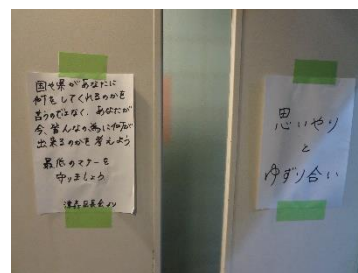 国や県があなたに
何をしてくれるのかを
言うのではなく、あなたが
今、皆んなの為に何が
出来るのかを考えよう
最低のマナーを
守りましょう
思いやり
と
ゆずり合い